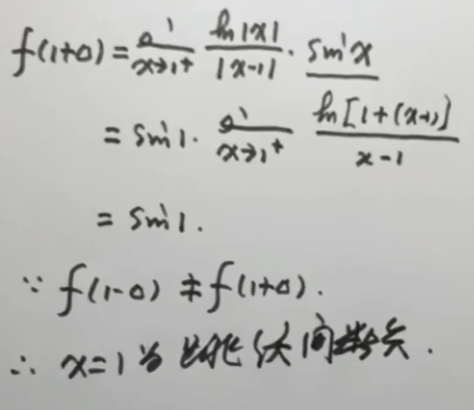 f(1+0) = lim x→1⁺ ln|x| / |x-1| · sin x
= sin1 · lim x→1⁺ ln[1+(x-1)] / x-1
= sin1.
∵ f(1-0) ≠ f(1+0).
∴ x=1为跳跃间断点.